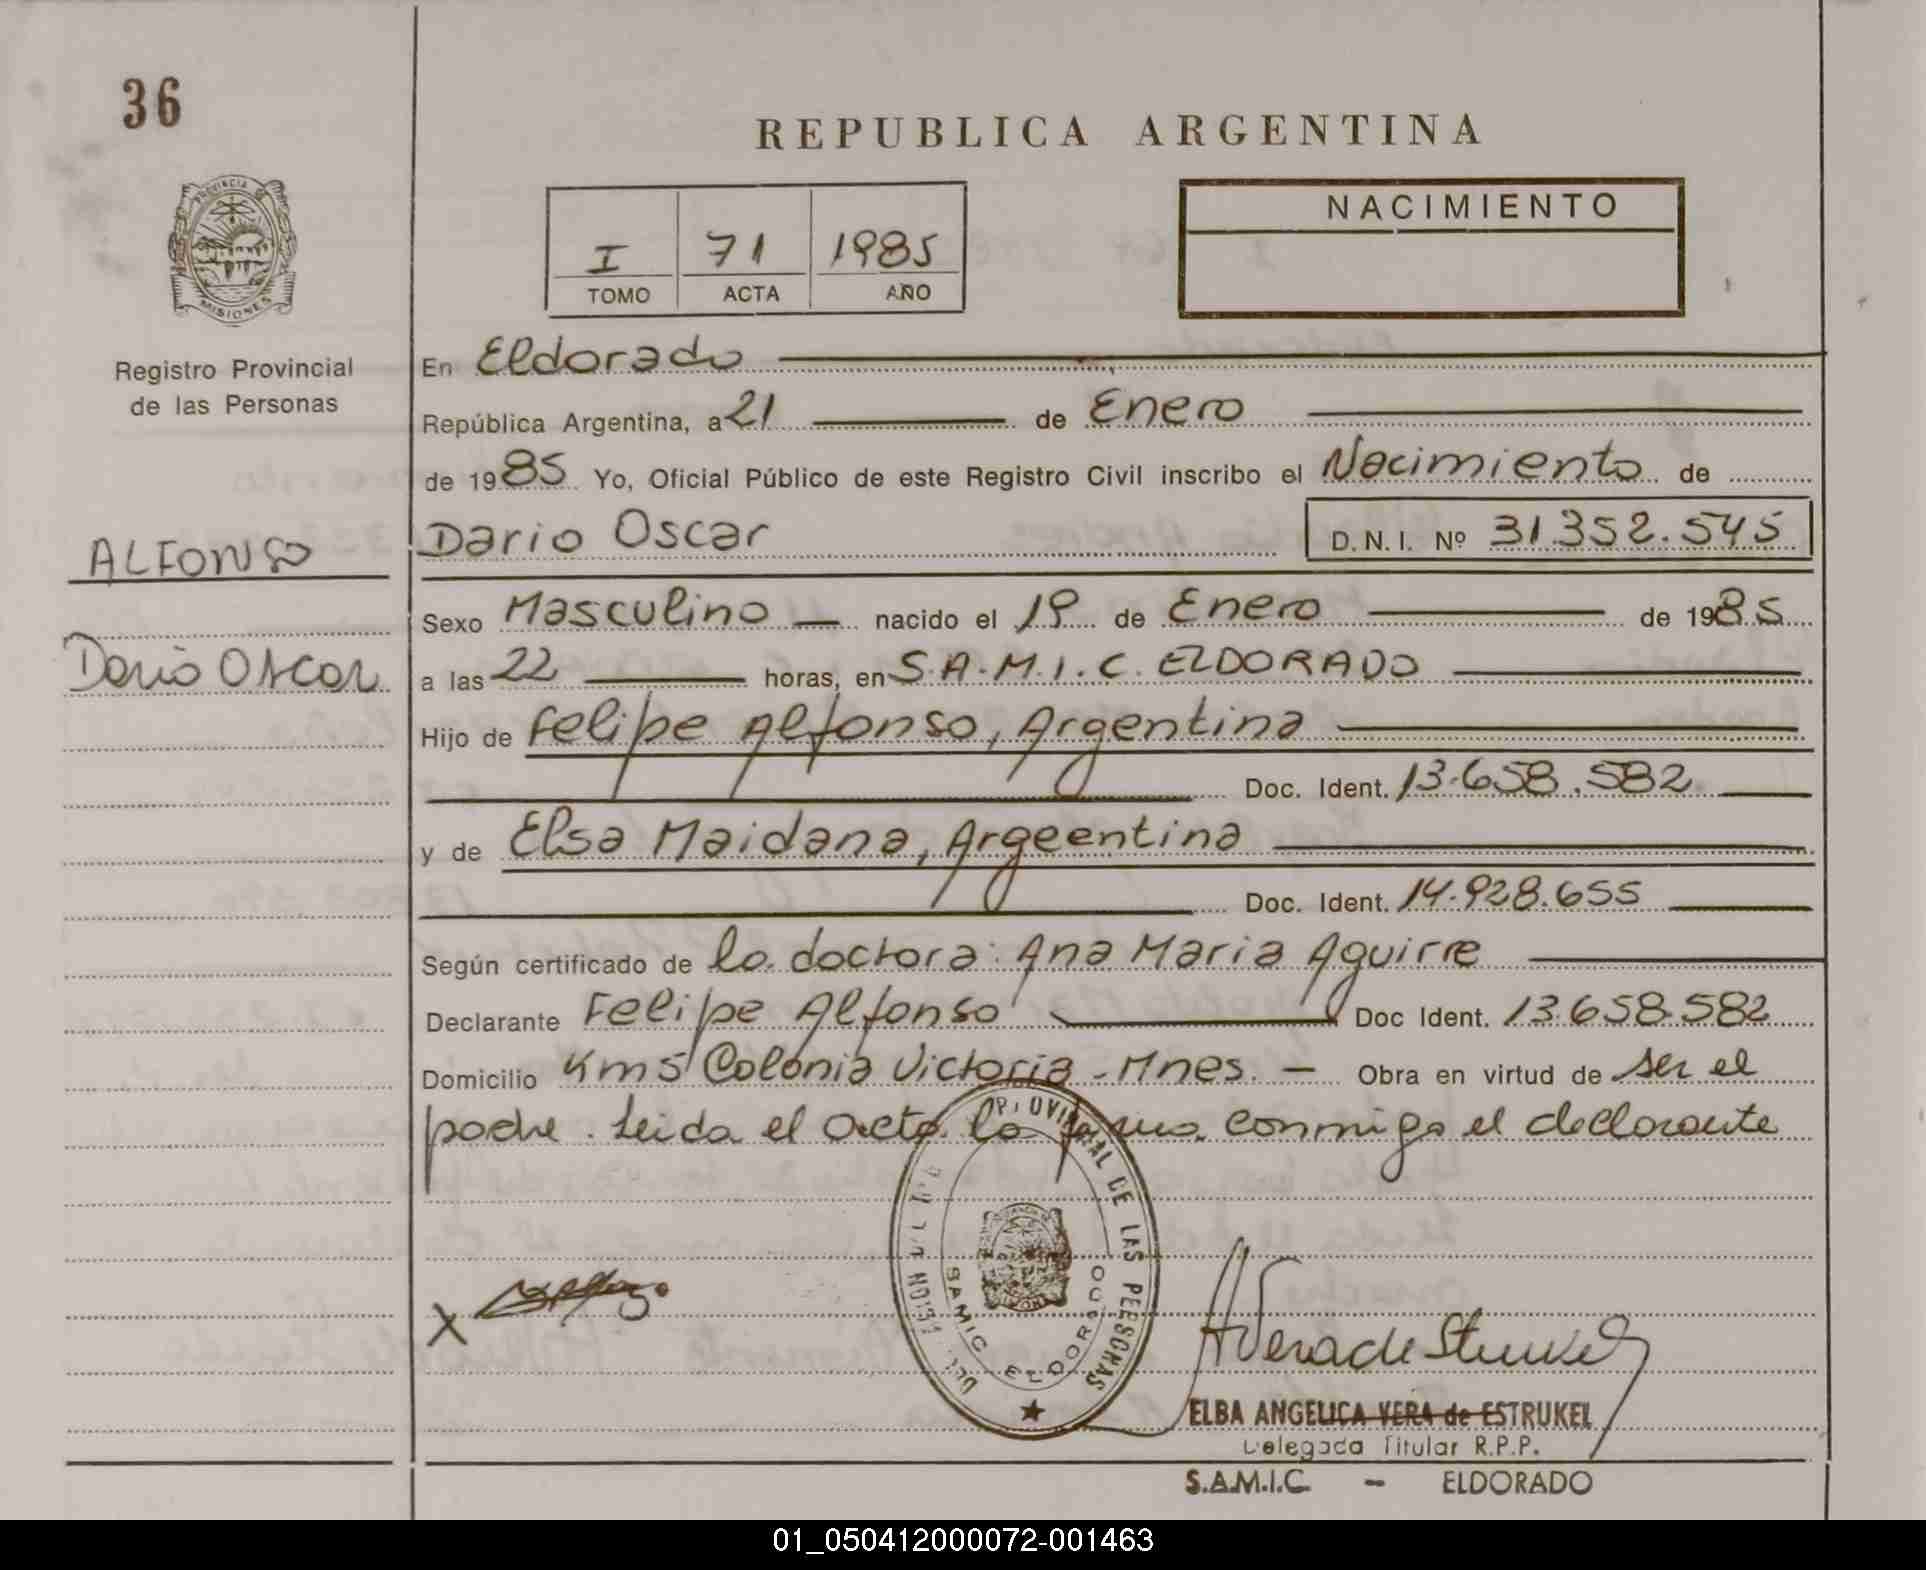 36
REPUBLICA ARGENTINA
PROVINCIA DE
MISIONES
I 71 1985
TOMO ACTA AÑO
NACIMIENTO
Registro Provincial
de las Personas
En Eldorado
República Argentina, a 21 de Enero
de 1985 Yo, Oficial Público de este Registro Civil inscribo el Nacimiento de
ALFONSO
Dario Oscar D.N.I. Nº 31.352.545
Sexo Masculino nacido el 19 de Enero de 1985
Dario Oscar
a las 22 horas, en S.A.M.I.C. ELDORADO
Hijo de Felipe Alfonso, Argentina
Doc. Ident. 13.658.582
y de Elsa Maidana, Argeentina
Doc. Ident. 14.928.655
Según certificado de la doctora: Ana Maria Aguirre
Declarante Felipe Alfonso Doc Ident. 13.658.582
Domicilio Km5 Colonia Victoria - Mnes. Obra en virtud de ser el
padre. Leida el acta la firma conmigo el declarante
PROVINCIAL DE LAS PERSONAS
SAMIC ELDORADO
X
AVera de Strukel
ELBA ANGELICA VERA de ESTRUKEL
Delegada Titular R.P.P.
S.A.M.I.C. - ELDORADO
01_050412000072-001463